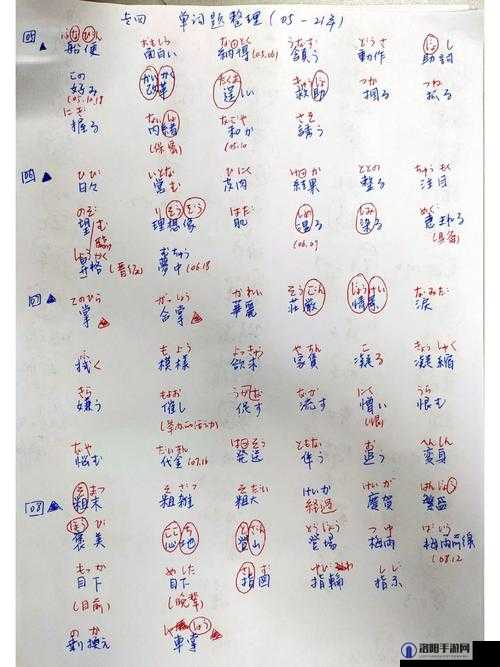 专四 单词题整理 (05-21年)
05 ふなびん おもしろ なっとく (05.06) うなず どうさ じょし
船便 面白い 納得 頷う 動作 助詞
この かいかく たくま きゅうじょ つか つね
好み (05.10,18 改革 逞しい 救助 掴る 抓る
にぎ ないしょ なごや さそ
握る 内緒 和か 誘う
(保密) (05.10
06 ひび いとな ひにく けっか ととの ちゅうもく
日々 営む 皮肉 結果 整る 注目
のぞ りそうぞう はだ しめ しみ めぐ
望む 理想像 肌 湿る 染る 恵まれる
臨む (06.09 (具备)
しょうかく むちゅう
昇格 (晋级) 夢中 (06.18
07 てのひら がっしょう かれい そうごん じょうけい なみだ
掌 合掌 華麗 荘厳 情景 涙
もよう よっきゅう やちん こ ぎょうしゅく
拭く 模様 欲求 家賃 凝る 凝縮
きら もよお うなが なが にく うら
嫌う 催し 促す 流す 憎い 恨む
(举办的活动) (恨)
なや だいきん はっそう ともな お へんしん
悩む 代金 (07.16 発送 伴う 追う 変身
08 そまつ そざつ そだい けいが はんじょう
粗末 粗雑 粗大 経過 慶賀 繁盛
ほうび ここち とざん とうじょう つゆ
褒美 心地 登山 登場 梅雨 梅雨前線
(08.12
もっか めした さしず ゆびわ しじ
目下 目下 指図 指輪 指示
(目前) (晚辈)
のか しゃしょう
乗り換え 車掌
洛阳手游网